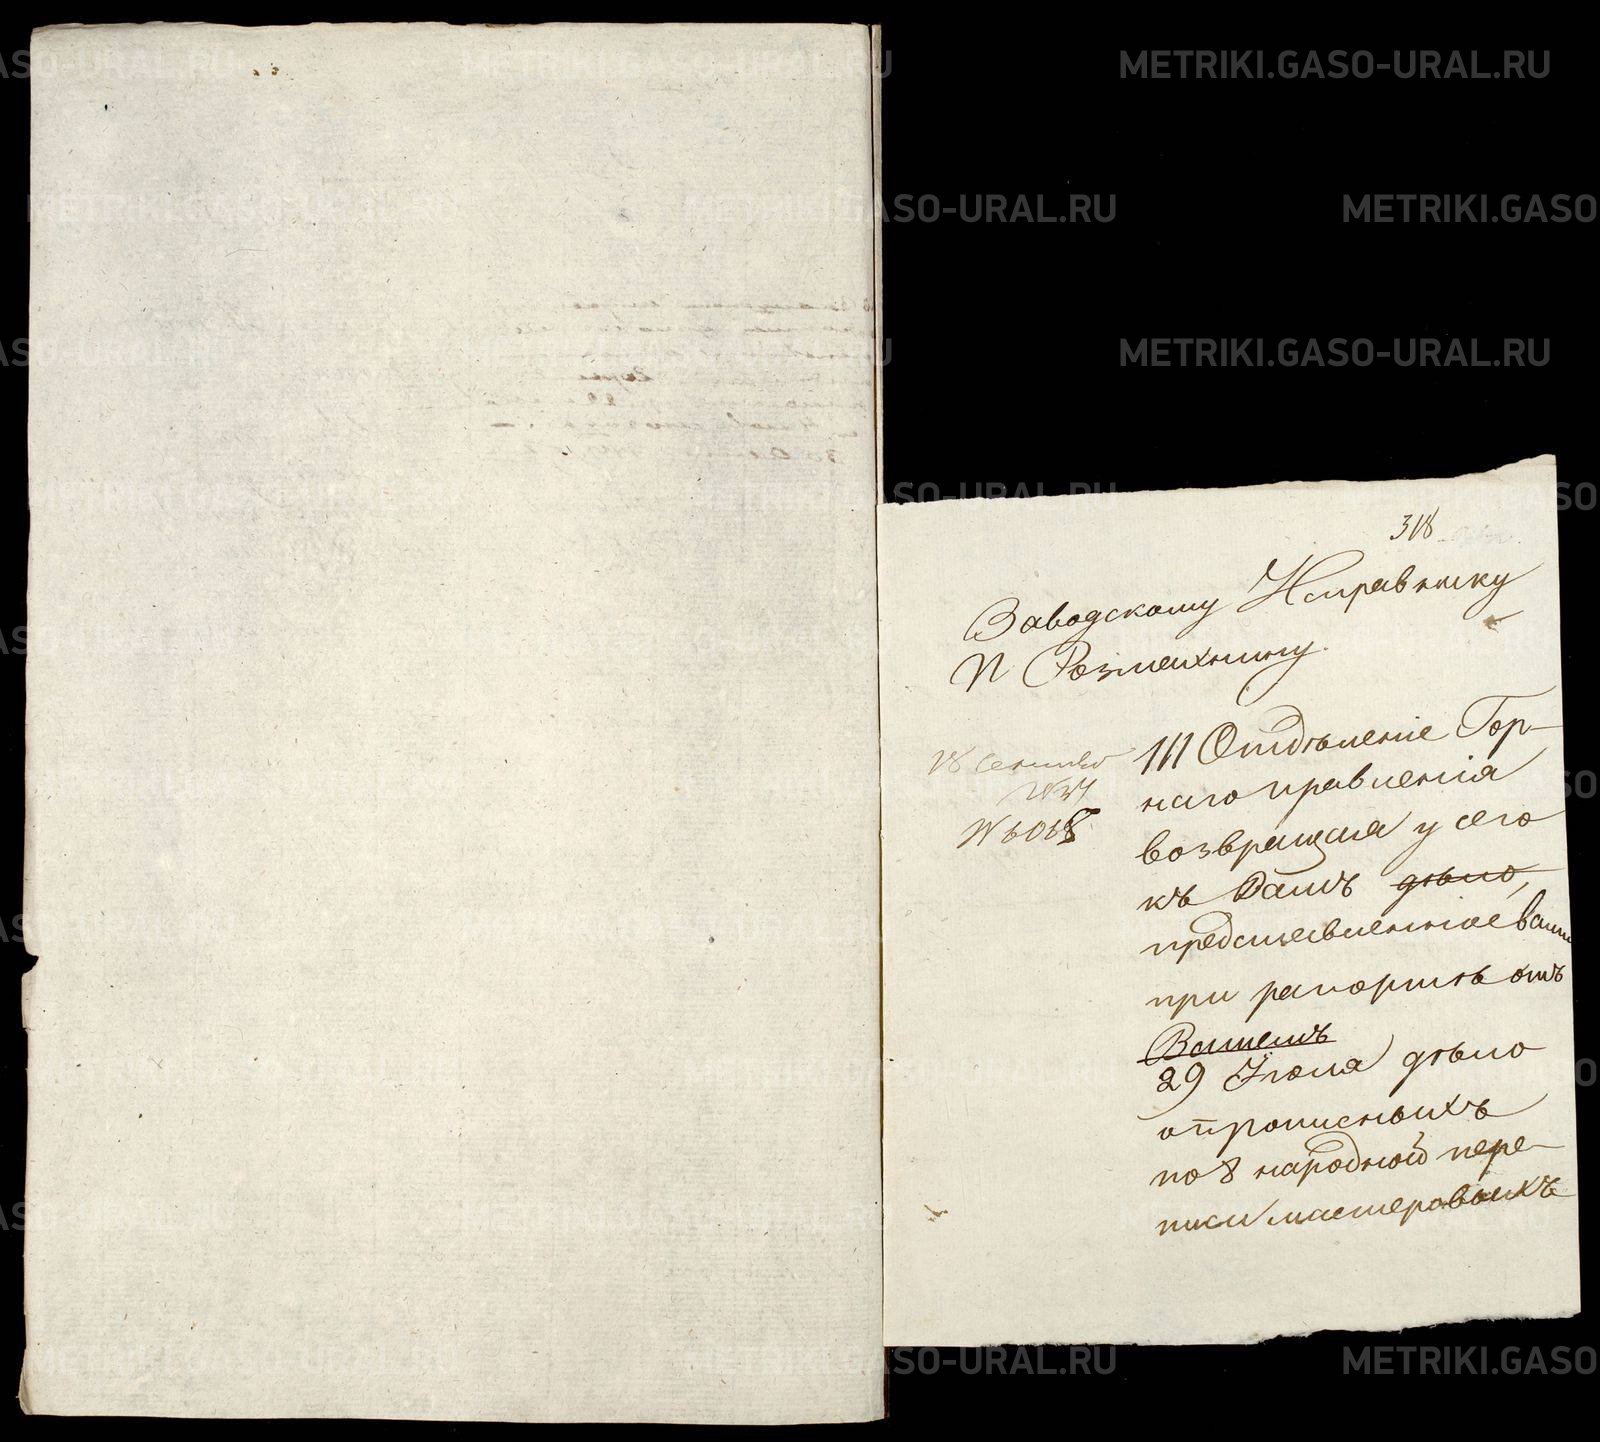 318
Заводскому Исправнику
Г. Розмахнину.
18 Сентября
№ 6018
III Отдѣленіе Гор-
наго правленія
возвращая у сего
къ Вамъ дѣло,
представленное вами
при рапортѣ отъ
Вашемъ
29 Іюля дѣло
о прописныхъ
по 8 народной пере-
писи мастеровыхъ
METRIKI.GASO-URAL.RU